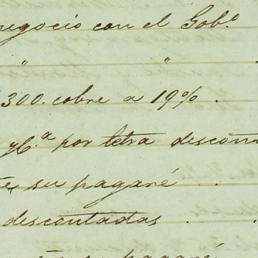 negocio con el Gob.º
" "
300. cobre a 19% .
H.ª por letra descon
su pagaré
descontadas . .
su pagaré